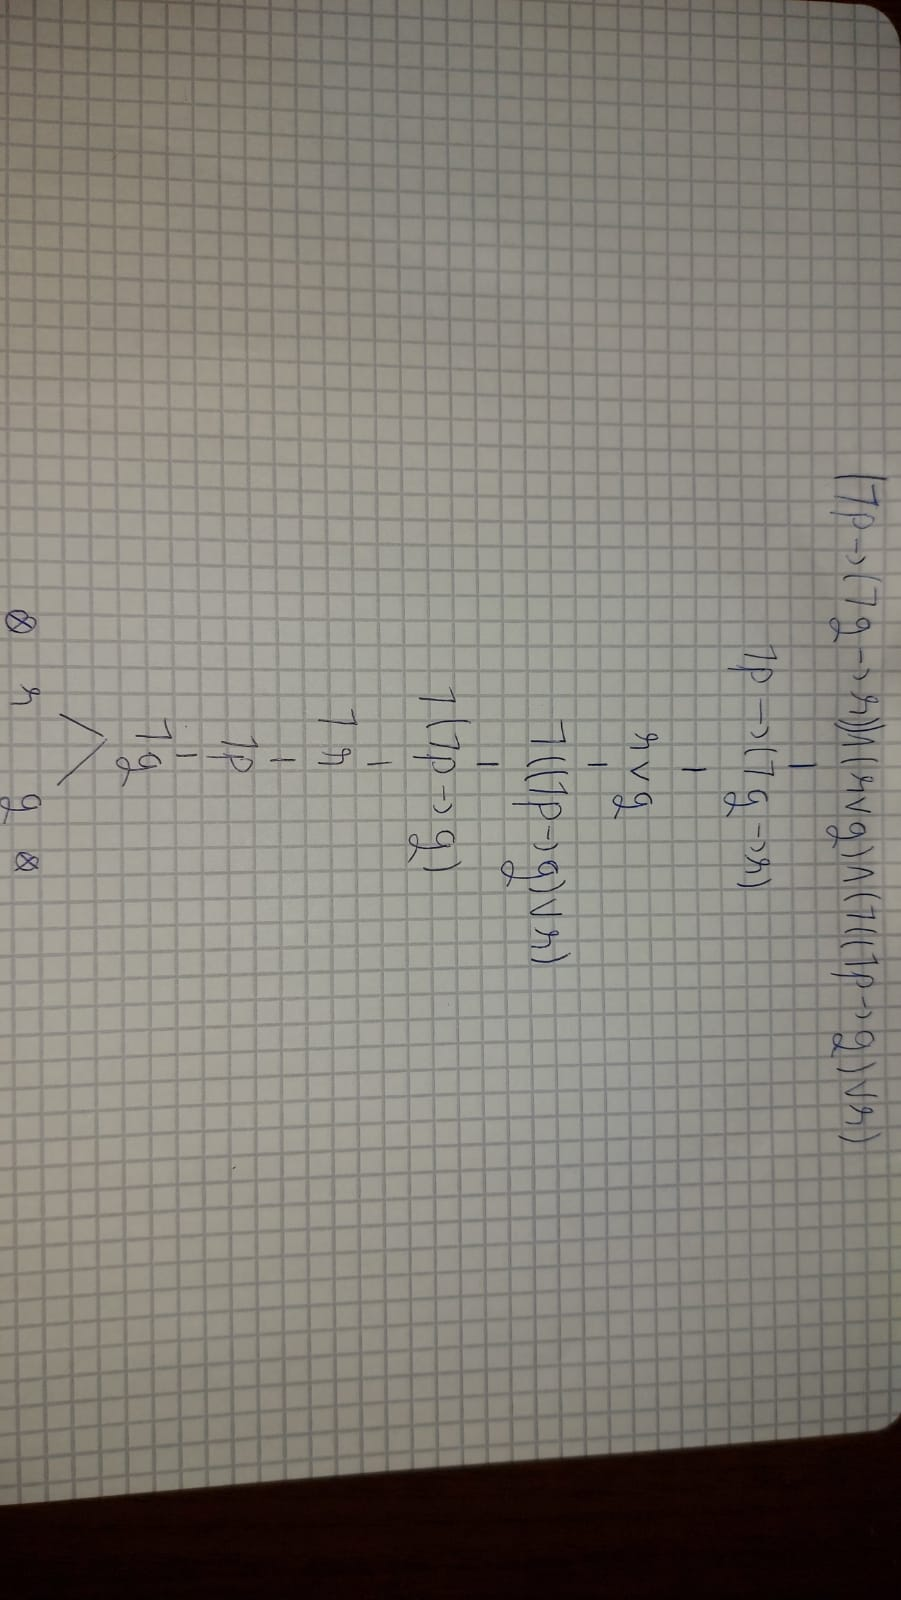 (¬p→(¬q→r))∧(r∨q)∧(¬((¬p→q)∨r)
¬p→(¬q→r)
r∨q
¬((¬p→q)∨r)
¬(¬p→q)
¬r
¬p
¬q
⊗ r q ⊗